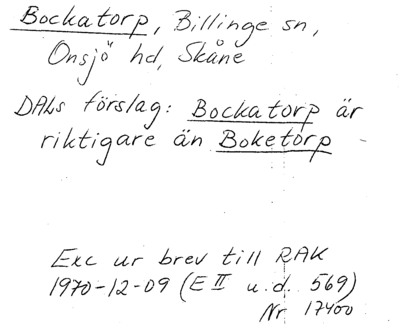 Bockatorp, Billinge sn,
Onsjö hd, Skåne
DALs förslag: Bockatorp är
riktigare än Boketorp
Exc ur brev till RAK
1970-12-09 (E II u.d. 569)
Nr 17400